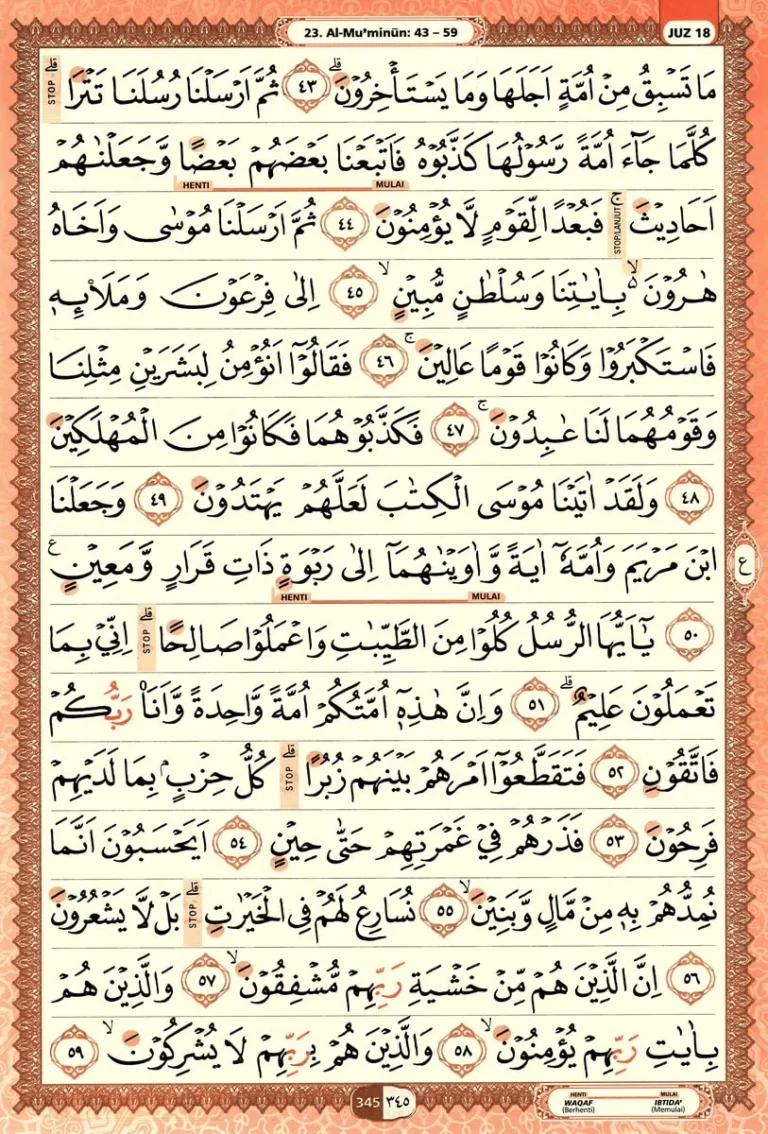 23. Al-Mu’minūn: 43 – 59
JUZ 18
مَا تَسْبِقُ مِنْ اُمَّةٍ اَجَلَهَا وَمَا يَسْتَأْخِرُوْنَۗ ٤٣ ثُمَّ اَرْسَلْنَا رُسُلَنَا تَتْرَاۗ STOP
كُلَّمَا جَاۤءَ اُمَّةً رَّسُوْلُهَا كَذَّبُوْهُ فَاَتْبَعْنَا بَعْضَهُمْ بَعْضًا وَّجَعَلْنٰهُمْ
MULAI HENTI
اَحَادِيْثَۚ STOP/LANJUT فَبُعْدًا لِّقَوْمٍ لَّا يُؤْمِنُوْنَ ٤٤ ثُمَّ اَرْسَلْنَا مُوْسٰى وَاَخَاهُ
هٰرُوْنَ ەۙ بِاٰيٰتِنَا وَسُلْطٰنٍ مُّبِيْنٍۙ ٤٥ اِلٰى فِرْعَوْنَ وَمَلَا۟ىِٕهٖ
فَاسْتَكْبَرُوْا وَكَانُوْا قَوْمًا عَالِيْنَۚ ٤٦ فَقَالُوْٓا اَنُؤْمِنُ لِبَشَرَيْنِ مِثْلِنَا
وَقَوْمُهُمَا لَنَا عٰبِدُوْنَۚ ٤٧ فَكَذَّبُوْهُمَا فَكَانُوْا مِنَ الْمُهْلَكِيْنَ
٤٨ وَلَقَدْ اٰتَيْنَا مُوْسَى الْكِتٰبَ لَعَلَّهُمْ يَهْتَدُوْنَ ٤٩ وَجَعَلْنَا
ابْنَ مَرْيَمَ وَاُمَّهٗٓ اٰيَةً وَّاٰوَيْنٰهُمَآ اِلٰى رَبْوَةٍ ذَاتِ قَرَارٍ وَّمَعِيْنٍ ࣖ
ع
MULAI HENTI
٥٠ يٰٓاَيُّهَا الرُّسُلُ كُلُوْا مِنَ الطَّيِّبٰتِ وَاعْمَلُوْا صَالِحًاۗ STOP اِنِّيْ بِمَا
تَعْمَلُوْنَ عَلِيْمٌۗ ٥١ وَاِنَّ هٰذِهٖٓ اُمَّتُكُمْ اُمَّةً وَّاحِدَةً وَّاَنَا۠ رَبُّكُمْ
فَاتَّقُوْنِ ٥٢ فَتَقَطَّعُوْٓا اَمْرَهُمْ بَيْنَهُمْ زُبُرًاۗ STOP كُلُّ حِزْبٍۢ بِمَا لَدَيْهِمْ
فَرِحُوْنَ ٥٣ فَذَرْهُمْ فِيْ غَمْرَتِهِمْ حَتّٰى حِيْنٍ ٥٤ اَيَحْسَبُوْنَ اَنَّمَا
نُمِدُّهُمْ بِهٖ مِنْ مَّالٍ وَّبَنِيْنَۙ ٥٥ نُسَارِعُ لَهُمْ فِى الْخَيْرٰتِۗ STOP بَلْ لَّا يَشْعُرُوْنَ
٥٦ اِنَّ الَّذِيْنَ هُمْ مِّنْ خَشْيَةِ رَبِّهِمْ مُّشْفِقُوْنَۙ ٥٧ وَالَّذِيْنَ هُمْ
بِاٰيٰتِ رَبِّهِمْ يُؤْمِنُوْنَۙ ٥٨ وَالَّذِيْنَ هُمْ بِرَبِّهِمْ لَا يُشْرِكُوْنَۙ ٥٩
345 ٣٤٥
HENTI MULAI
WAQAF IBTIDA’
(Berhenti) (Memulai)